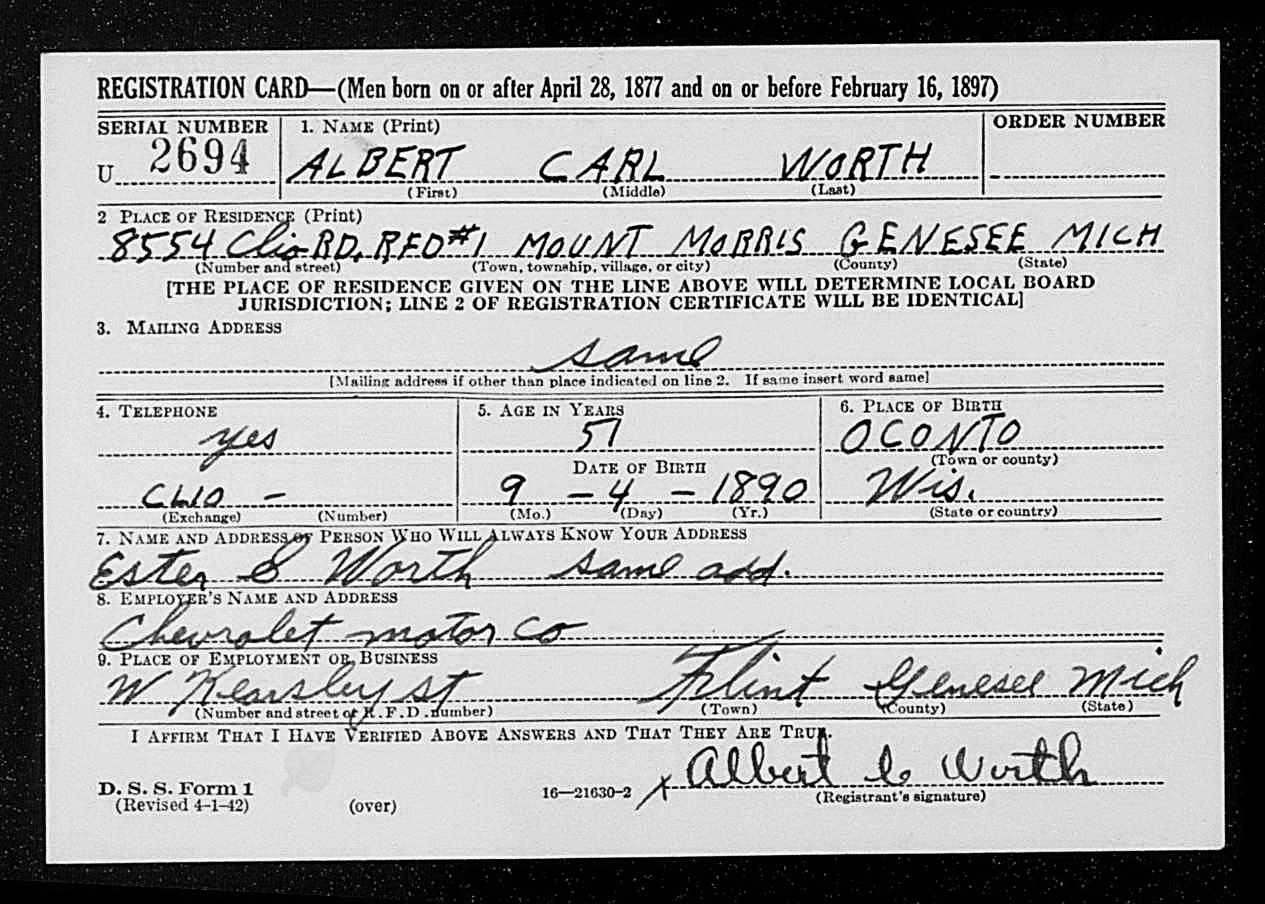 REGISTRATION CARD—(Men born on or after April 28, 1877 and on or before February 16, 1897)
SERIAL NUMBER 1. NAME (Print) ORDER NUMBER
U 2694 ALBERT CARL WORTH
(First) (Middle) (Last)
2 PLACE OF RESIDENCE (Print)
8554 Clio RD. RFD #1 MOUNT MORRIS GENESEE MICH
(Number and street) (Town, township, village, or city) (County) (State)
[THE PLACE OF RESIDENCE GIVEN ON THE LINE ABOVE WILL DETERMINE LOCAL BOARD
JURISDICTION; LINE 2 OF REGISTRATION CERTIFICATE WILL BE IDENTICAL]
3. MAILING ADDRESS
same
[Mailing address if other than place indicated on line 2. If same insert word same]
4. TELEPHONE 5. AGE IN YEARS 6. PLACE OF BIRTH
yes 51 OCONTO
DATE OF BIRTH (Town or county)
CLIO - 9 - 4 - 1890 Wis.
(Exchange) (Number) (Mo.) (Day) (Yr.) (State or country)
7. NAME AND ADDRESS OF PERSON WHO WILL ALWAYS KNOW YOUR ADDRESS
Ester S Worth same add.
8. EMPLOYER'S NAME AND ADDRESS
Chevrolet motor Co
9. PLACE OF EMPLOYMENT OR BUSINESS
W Kearsley st Flint Genesee Mich
(Number and street or R. F. D. number) (Town) (County) (State)
I AFFIRM THAT I HAVE VERIFIED ABOVE ANSWERS AND THAT THEY ARE TRUE.
Albert C Worth
D. S. S. Form 1
(Revised 4-1-42) (over) 16—21630-2 X (Registrant's signature)